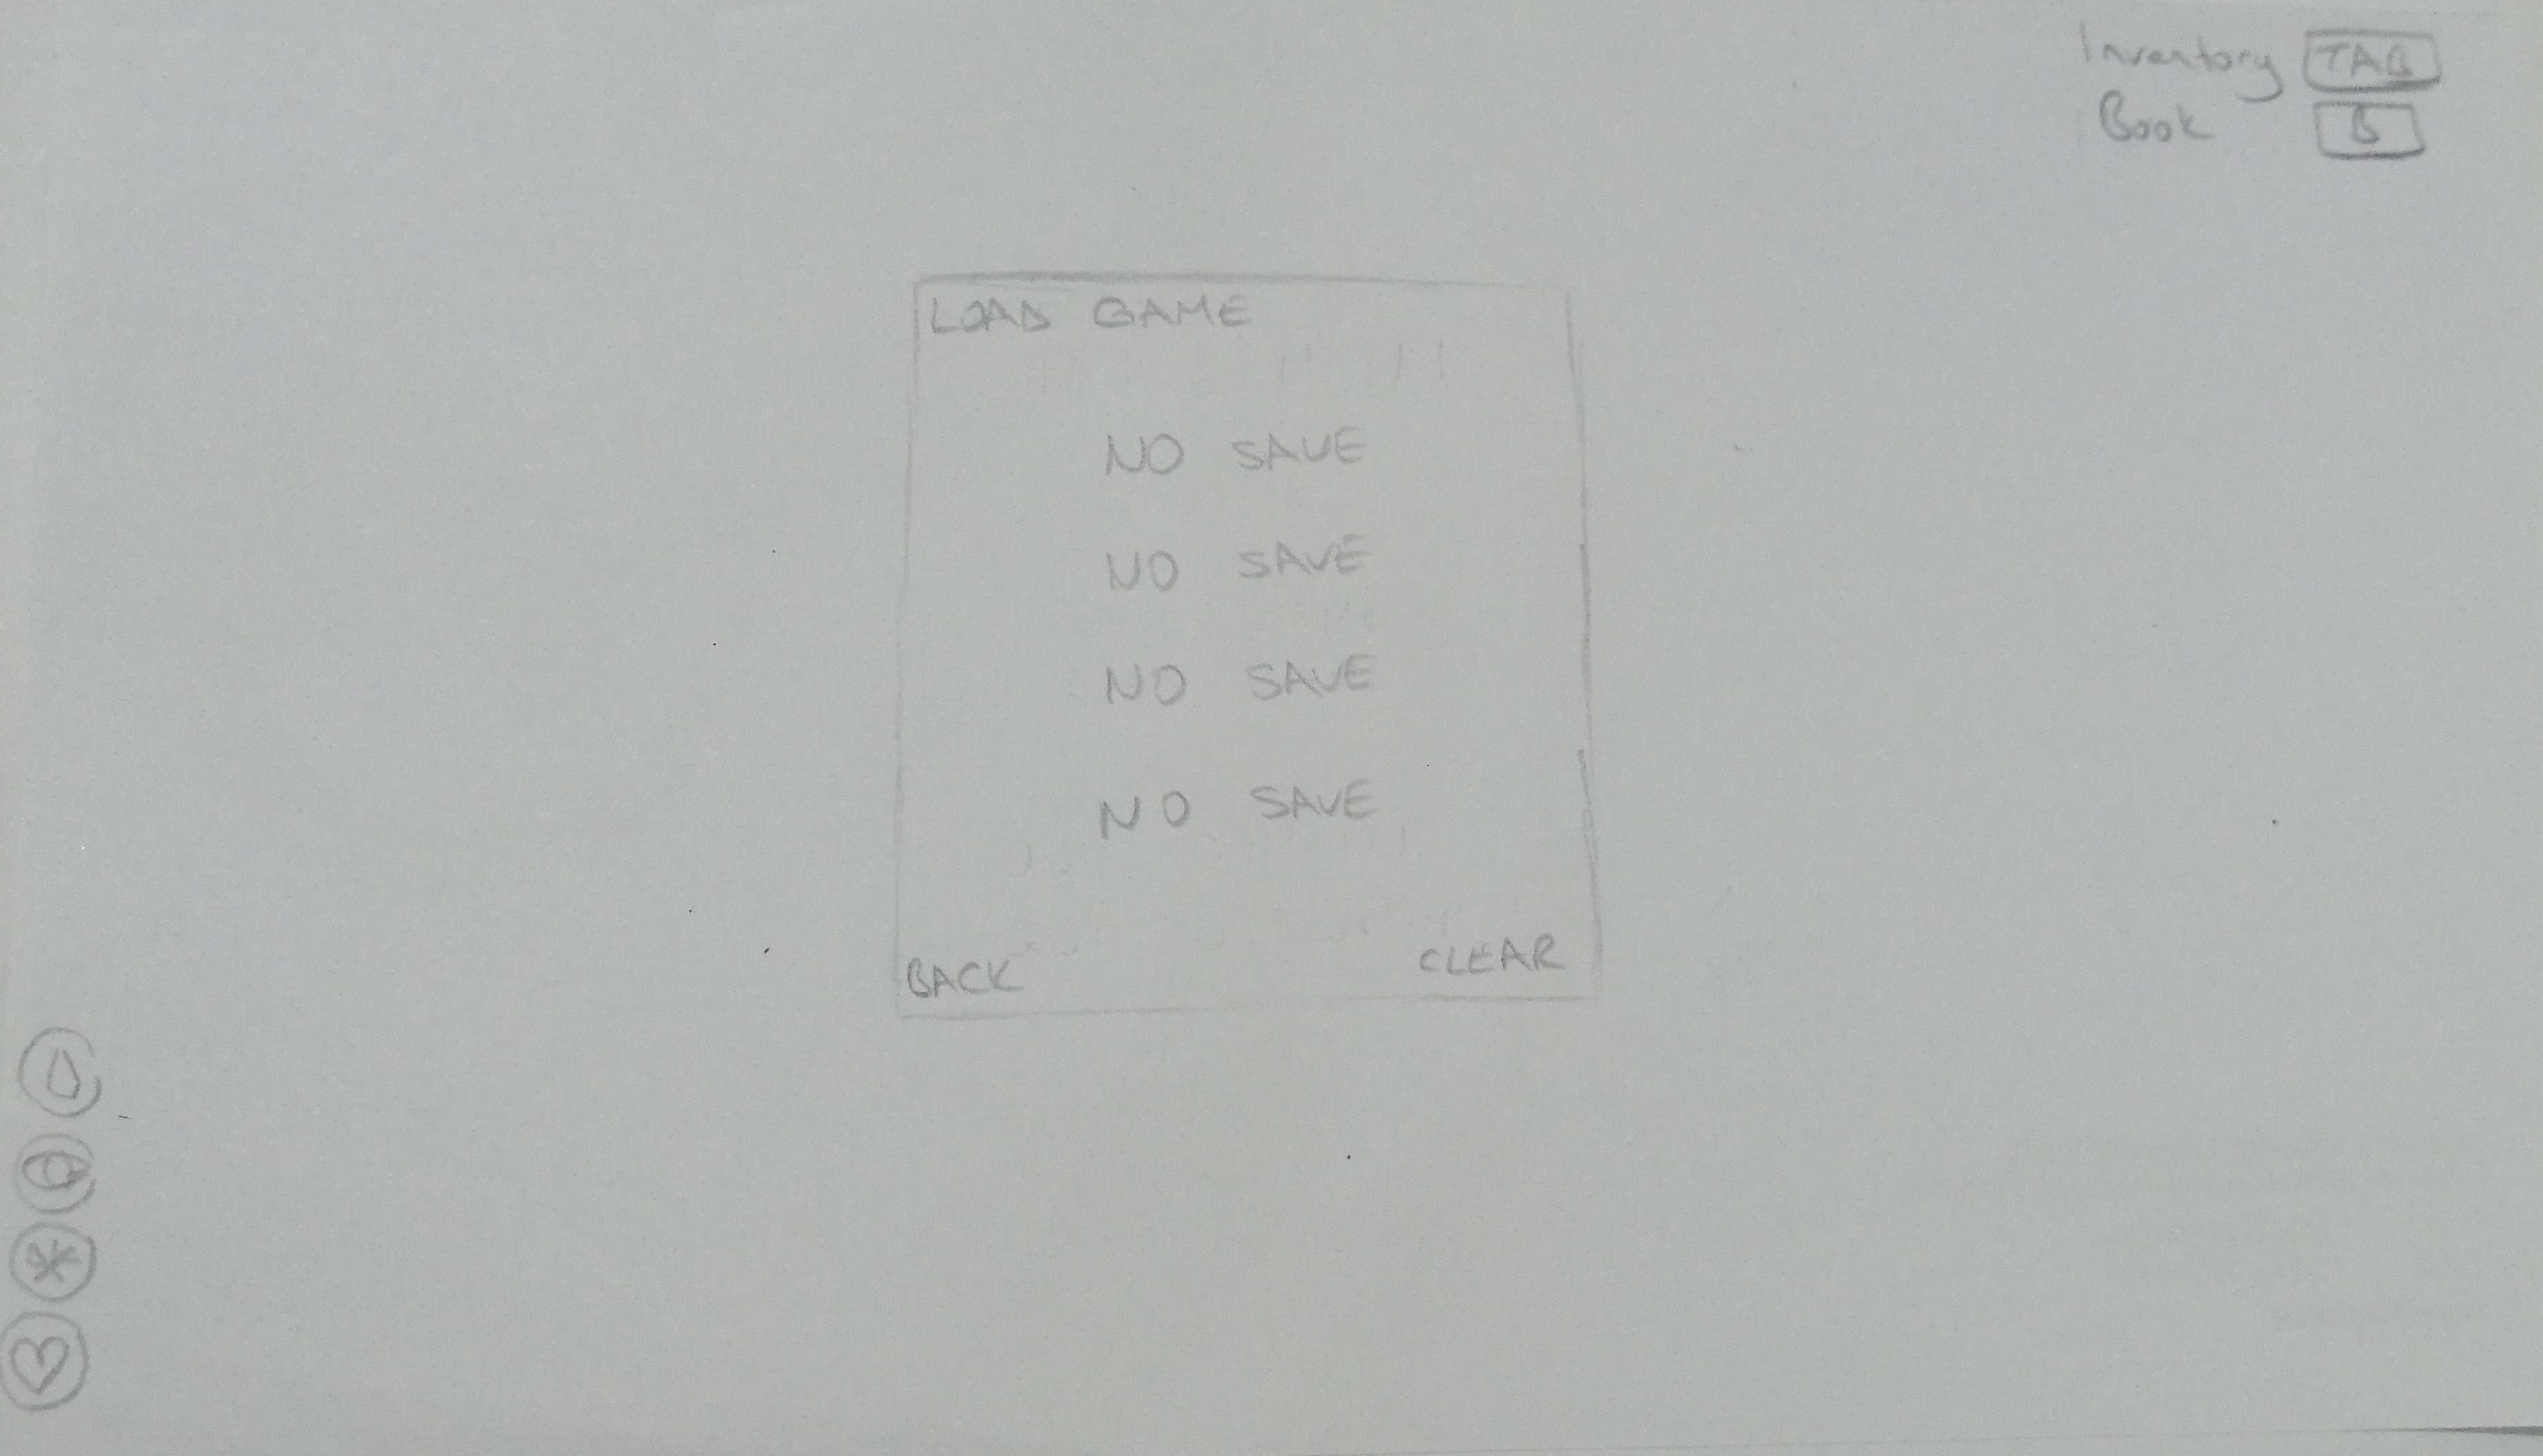 Inventory TAB
Book B
LOAD GAME
NO SAVE
NO SAVE
NO SAVE
NO SAVE
BACK CLEAR